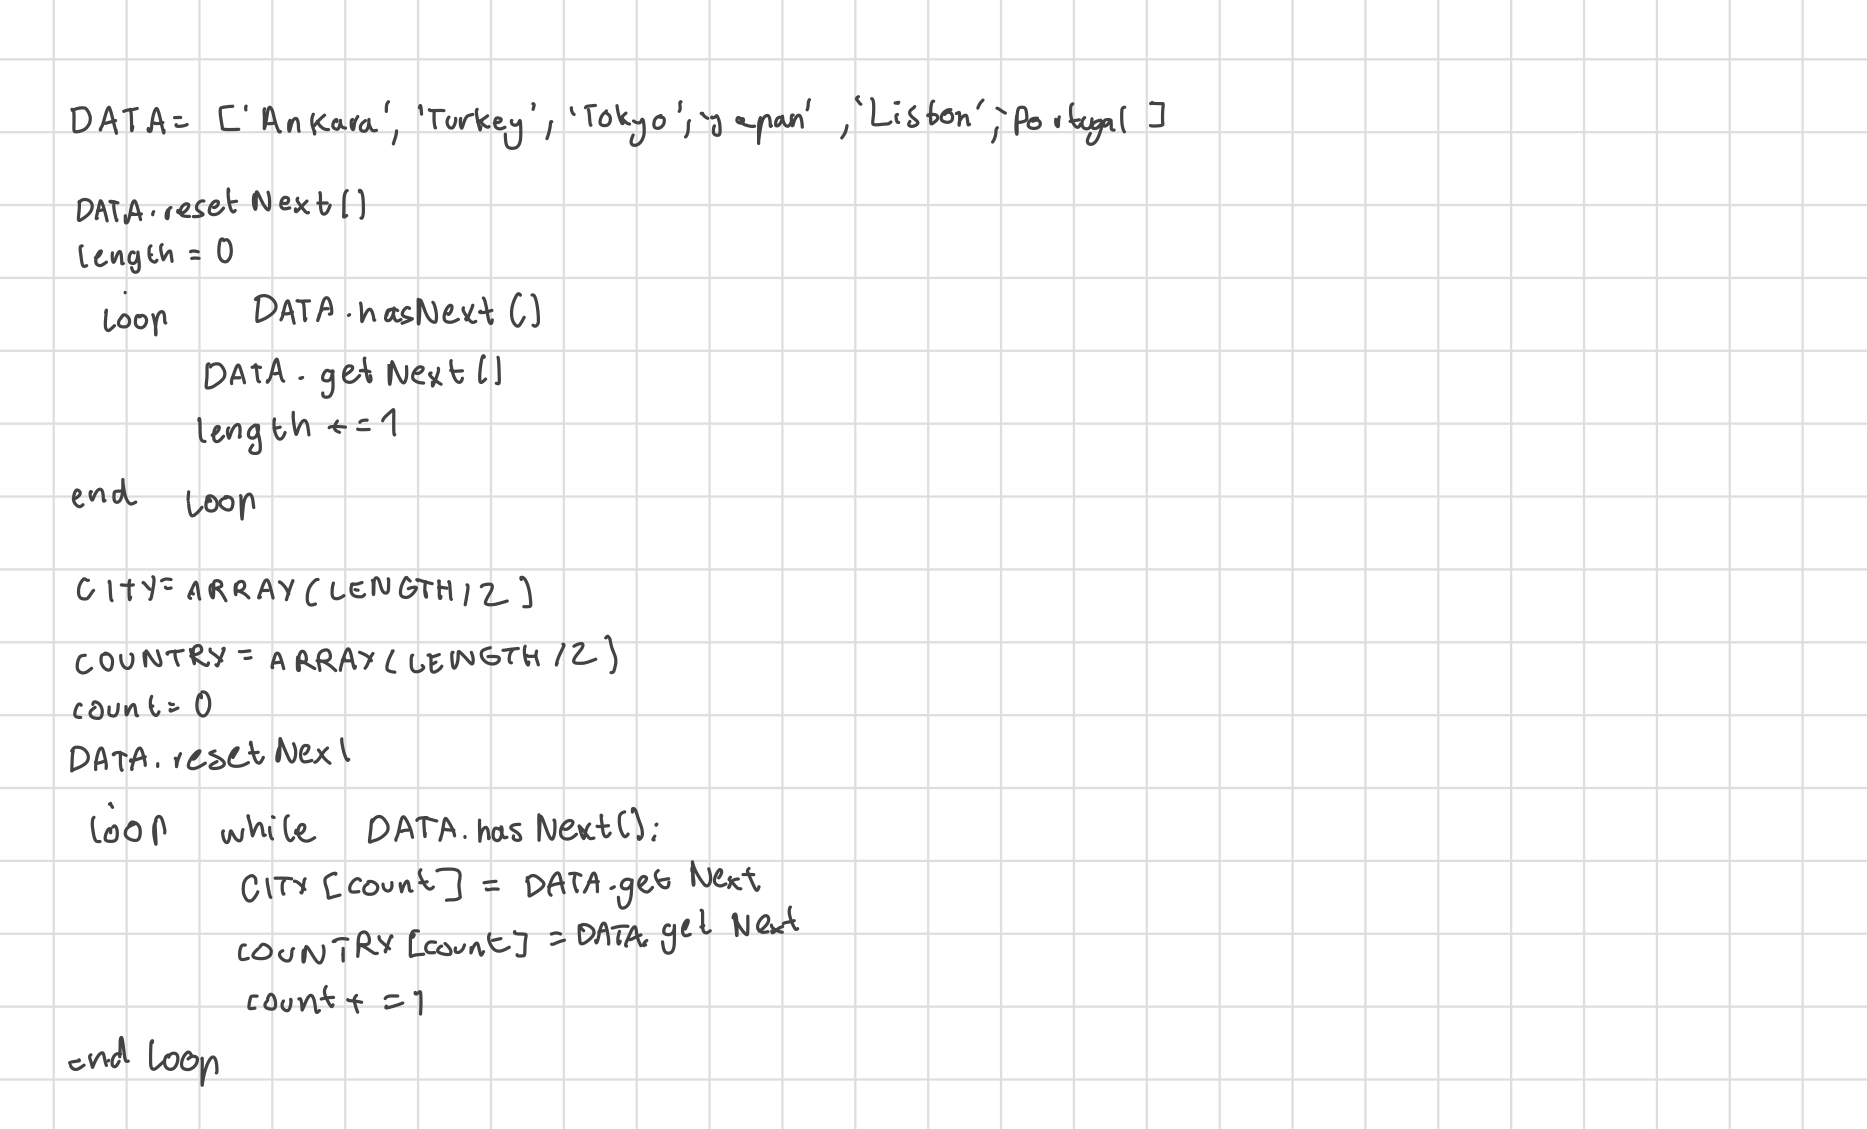 DATA= ['Ankara', 'Turkey', 'Tokyo', 'Japan' , 'Lisbon', Portugal ]
DATA.resetNext()
length = 0
loop DATA.hasNext()
DATA.getNext()
length +=1
end loop
CITY= ARRAY(LENGTH/2)
COUNTRY = ARRAY(LENGTH/2)
count= 0
DATA.resetNext
loop while DATA.hasNext():
CITY [count] = DATA.getNext
COUNTRY [count] = DATA.getNext
count + =1
end loop